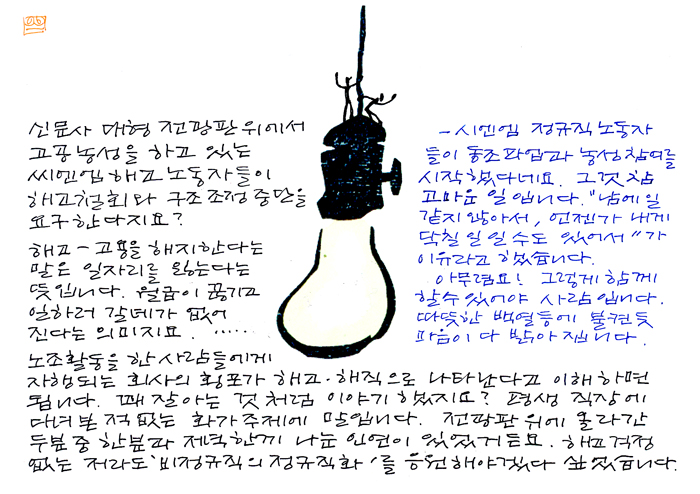 신문사 대형 전광판 위에서
고공농성을 하고 있는
씨엔엠 해고 노동자들이
해고철회와 구조조정 중단을
요구한다지요?
해고 - 고용을 해지한다는
말은 일자리를 잃는다는
뜻입니다. 월급이 끊기고
일하러 갈 데가 없어
진다는 의미지요. ······
- 시엔엠 정규직 노동자
들이 동조파업과 농성참여를
시작했다네요. 그것 참
고마운 일입니다. "남에 일
같지 않아서, 언젠가 내게
닥칠 일일 수도 있어서"가
이유라고 했습니다.
아무렴요! 그렇게 함께
할 수 있어야 사람입니다.
따뜻한 백열등에 불켠 듯
마음이 다 밝아집니다.
노조활동을 한 사람들에게
자행되는 회사의 횡포가 해고·해직으로 나타난다고 이해하면
됩니다. 꽤 잘아는 것처럼 이야기했지요? 평생 직장에
다녀본 적 없는 화가주제에 말입니다. 전광판 위에 올라간
두분 중 한분과 제법한끼 나눈 인연이 있었거든요. 해고걱정
없는 저라도 '비정규직의 정규직화'를 응원해야겠다 싶었습니다.